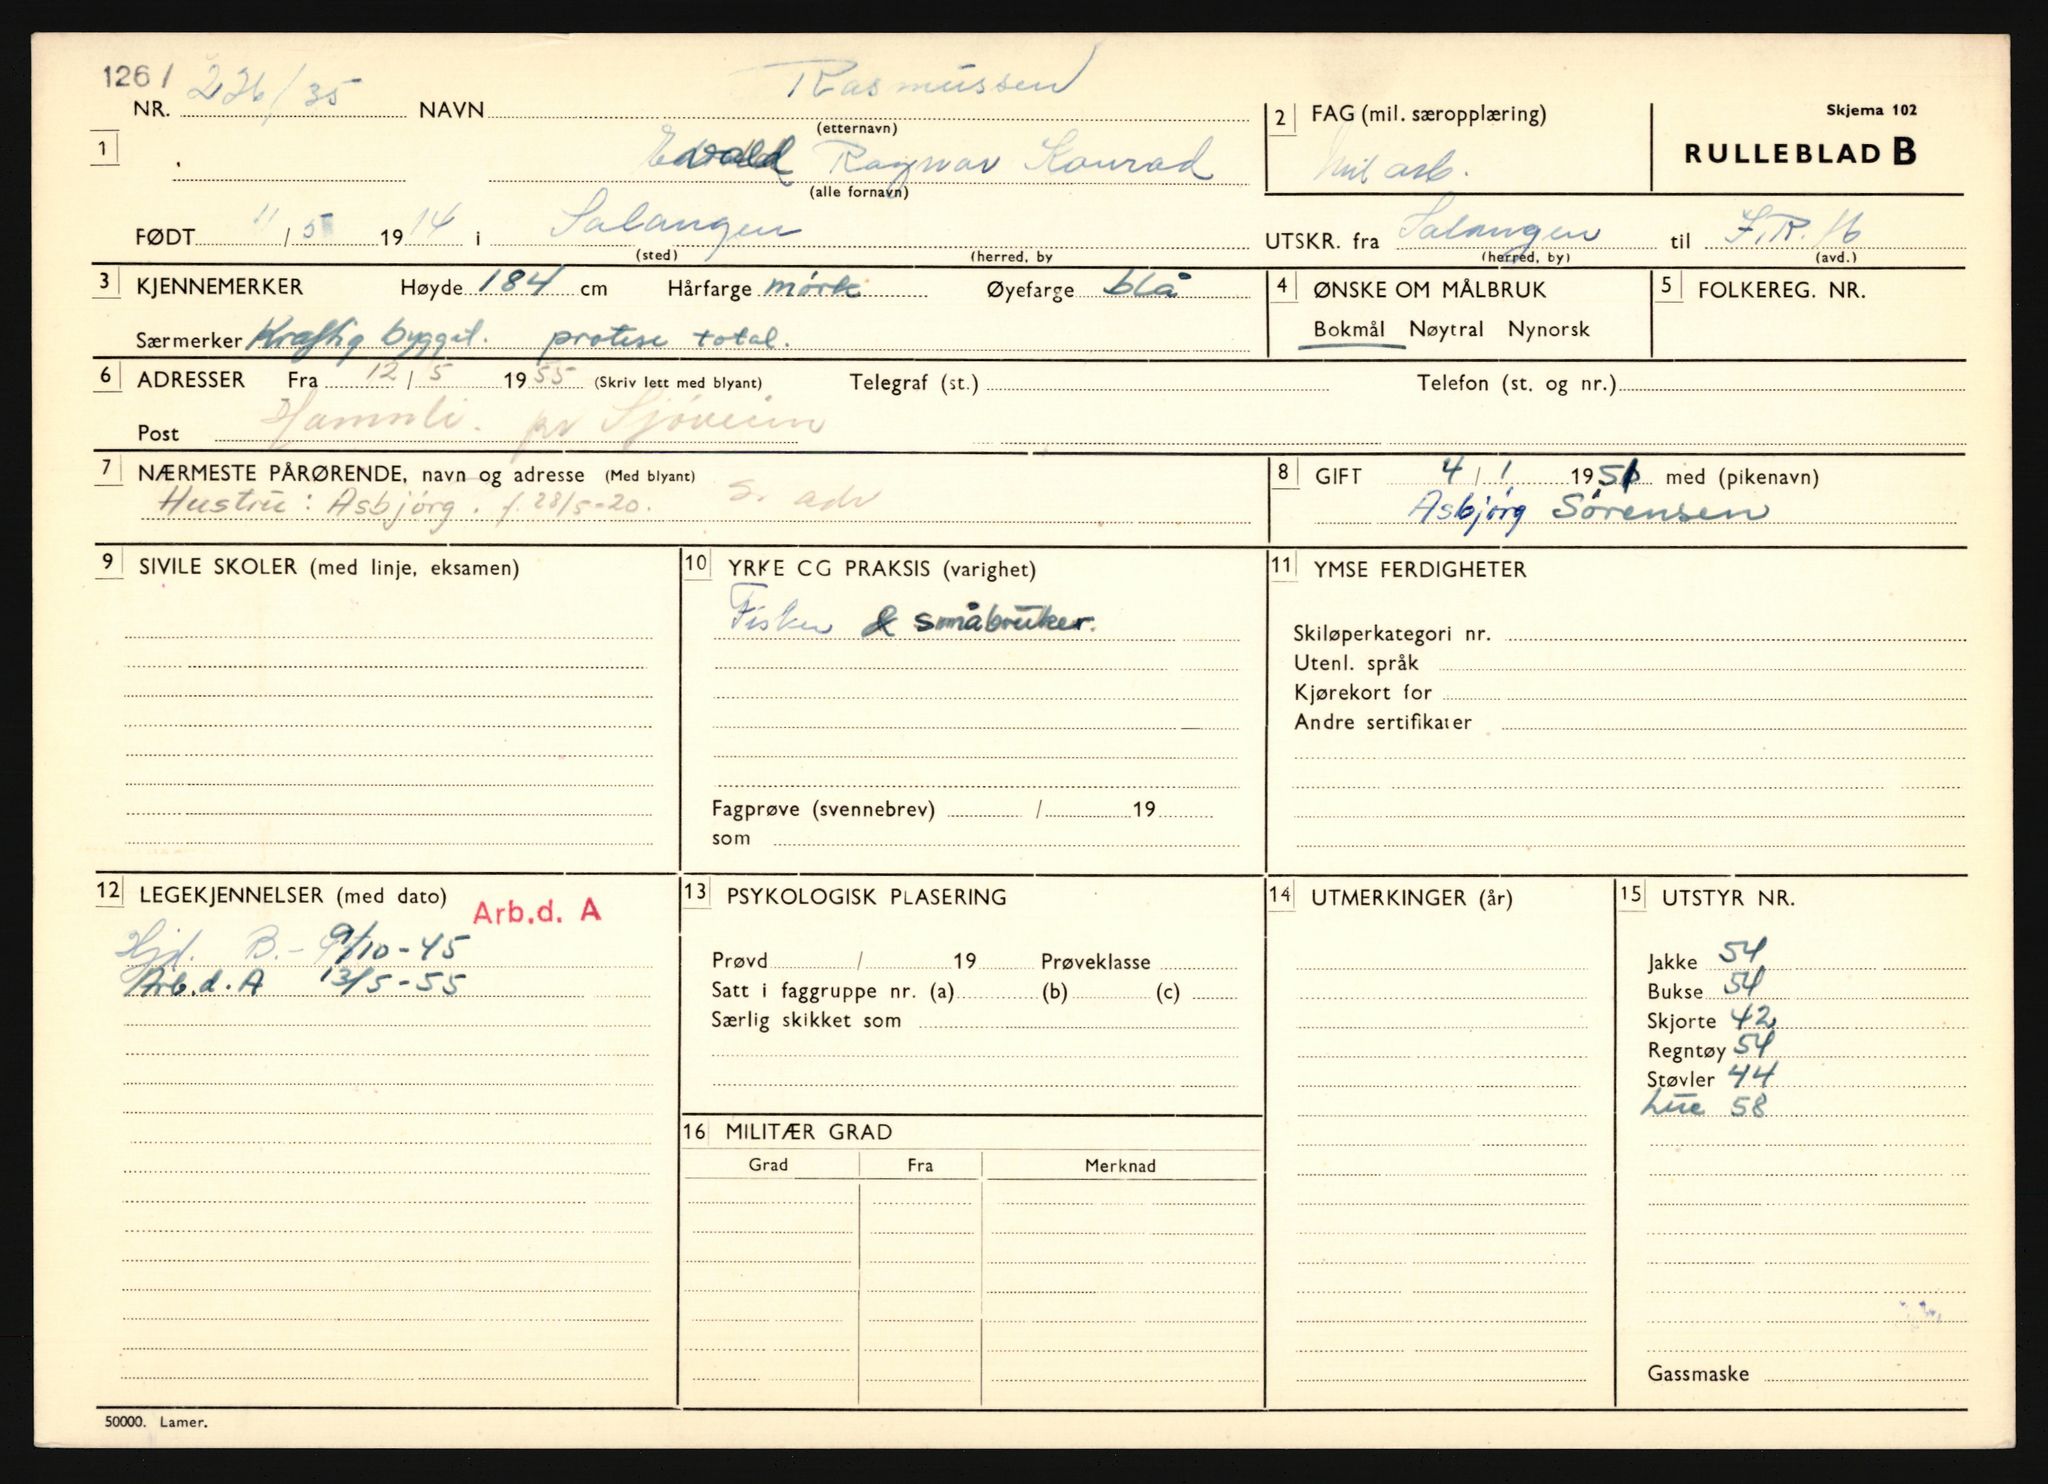 126/ 226/35 Rasmussen
NR. NAVN (etternavn)
1 Edvald Ragnar Konrad
(alle fornavn)
2 FAG (mil. særopplæring)
Mil arb.
Skjema 102
RULLEBLAD B
FØDT 11/5 1914 i Salangen
(sted) (herred, by
UTSKR. fra Salangen til I.R. 16
(herred, by) (avd.)
3 KJENNEMERKER Høyde 184 cm Hårfarge mörk Øyefarge blå
Særmerker Kraftig bygget. protese total.
4 ØNSKE OM MÅLBRUK
Bokmål Nøytral Nynorsk
5 FOLKEREG. NR.
6 ADRESSER Fra 12/5 1955 (Skriv lett med blyant) Telegraf (st.) Telefon (st. og nr.)
Post Hamnli. pr Sjöveien
7 NÆRMESTE PÅRØRENDE, navn og adresse (Med blyant)
Hustru: Asbjörg. f. 28/5-20. s. adr
8 GIFT 4/1 1951 med (pikenavn)
Asbjörg Sörensen
9 SIVILE SKOLER (med linje, eksamen)
10 YRKE CG PRAKSIS (varighet)
Fisker & småbruker.
Fagprøve (svennebrev) / 19
som
11 YMSE FERDIGHETER
Skiløperkategori nr.
Utenl. språk
Kjørekort for
Andre sertifikater
12 LEGEKJENNELSER (med dato) Arb.d. A
Hjd. B. - 9/10-45
Arb.d.A 13/5-55
13 PSYKOLOGISK PLASERING
Prøvd / 19 Prøveklasse
Satt i faggruppe nr. (a) (b) (c)
Særlig skikket som
14 UTMERKINGER (år)
15 UTSTYR NR.
Jakke 54
Bukse 54
Skjorte 42
Regntøy 54
Støvler 44
Lue 58
Gassmaske
16 MILITÆR GRAD
Grad Fra Merknad
50000. Lamer.